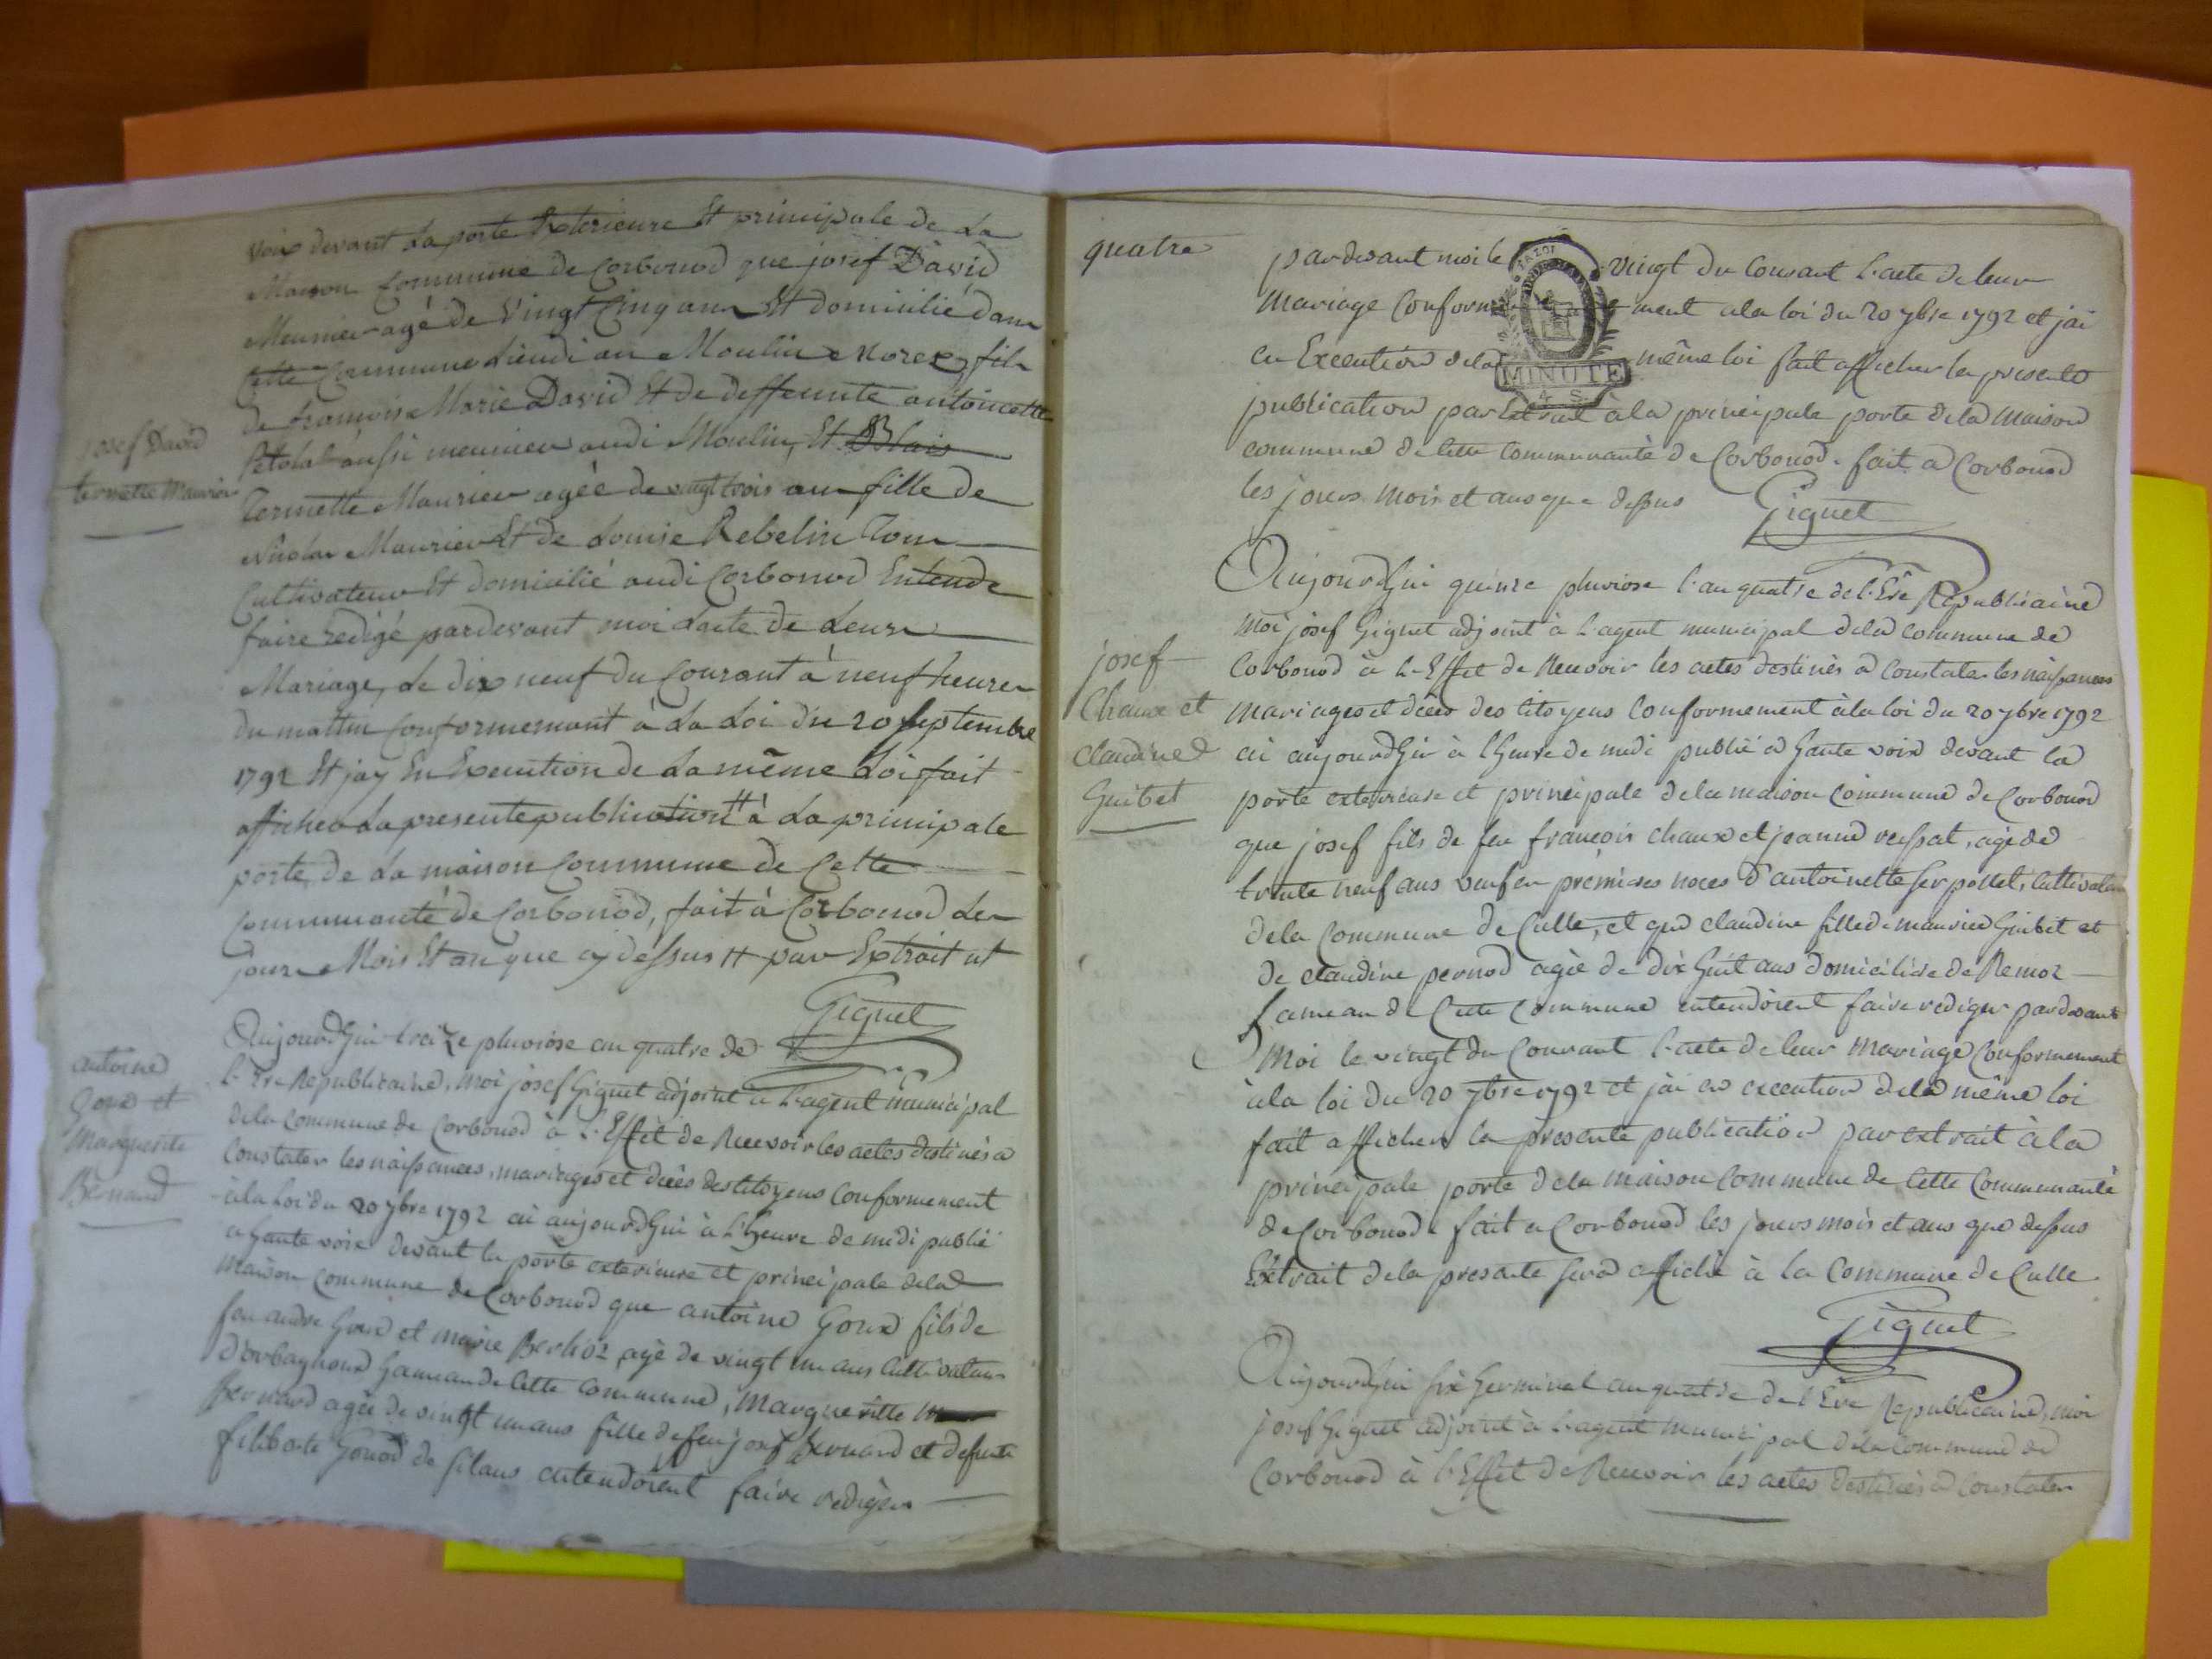 voix devant La porte Exterieure Et principale de La
Maison Commune de Corbonod que josef David
Meunier agé de Vingt Cinq ans Et domicilié dans
Cette Commune Lieudi au Moulin fils
de francois Marie David Et de deffeunte antoinette
aussi meunier audi Moulin, Et Blais
josef David
ternette Maurier
Ternette Maurier agée de vingt trois ans fille de
Nicolas Maurier Et de Louise Rebelin Tous
Cultivateur Et domicilié audi Corbonod Entende
faire redigé pardevant moi Lacte de Leurs
Mariage, Le dix neuf du Courant à neuf heures
du mattin Conformemant à La Loi du 20 Septembre
1792 Et jay En Execution de La même Loi fait
afficher La presente publication H à La principale
porte de La maison Commune de Cette
Communauté de Corbonod, fait à Corbonod Les
jours Mois Et an que cy dessus H par Extrait
Giguet
antoine
Goux et
Marguerite
Bernard
Aujourdhui treize pluviose an quatre de
l'Ere Republicaine, moi josef Giguet adjoint à l'agent municipal
dela Commune de Corbonod à l'Effet de Recevoir les actes destinés a
Constater les naissances, mariages et décès des Citoyens Conformement
à la Loi du 20 7bre 1792 ai aujourdhui à l'heure de midi publié
a haute voix devant la porte exterieure et principale dela
maison Commune de Corbonod que antoine Goux fils de
feu andre Goux et marie Berlioz, agé de vingt un ans Cultivateur
d'orbagnoux hameau de Cette Commune, Marguerite
Bernard agée de vingt un ans fille de feu josef Bernard et defunte
filiberte Gonod de silans entendoient faire rediger
quatre
pardevant moi le vingt du Courant l'acte de leur
Mariage Conformement ala loi du 20 7bre 1792 et jai
en Execution dela même loi fait afficher la presente
MINUTE
publication par Extrait ala principale porte dela maison
commune de Cette Communauté de Corbonod. fait a Corbonod
les jours mois et ans que dessus
Giguet
josef
Chaux et
claudine
Guibet
Aujourdhui quinze pluviose l'an quatre de l'Ere Republicaine
Moi josef Giguet adjoint à l'agent municipal dela Commune de
Corbonod à l'Effet de Recevoir les actes destinés a Constater les naissances
Mariages et décès des Citoyens Conformement à la loi du 20 7bre 1792
ai aujourdhui à l'heure de midi publié a haute voix devant la
porte exterieure et principale dela maison Commune de Corbonod
que josef fils de feu françois chaux et jeanne agé de
trente neuf ans veuf en premieres noces d'antoinette Serpollet, Cultivateur
dela Commune de Culle, et que claudine fille de maurice Guibet et
de claudine pernod agée de dix huit ans domiciliée de Remoz
hameau de Cette Commune entendoient faire rediger pardevant
Moi le vingt du Courant l'acte de leur Mariage Conformement
à la loi du 20 7bre 1792 et jai en execution dela même loi
fait afficher la presente publication par extrait à la
principale porte dela maison Commune de Cette Communauté
de Corbonod. fait a Corbonod les jours mois et ans que dessus
Extrait dela presente sera affiché à la Commune de Culle
Giguet
Aujourdhui six Germinal an quatre de l'Ere Republicaine, moi
josef Giguet adjoint à l'agent municipal dela Commune de
Corbonod à l'Effet de Recevoir les actes destinés a Constater